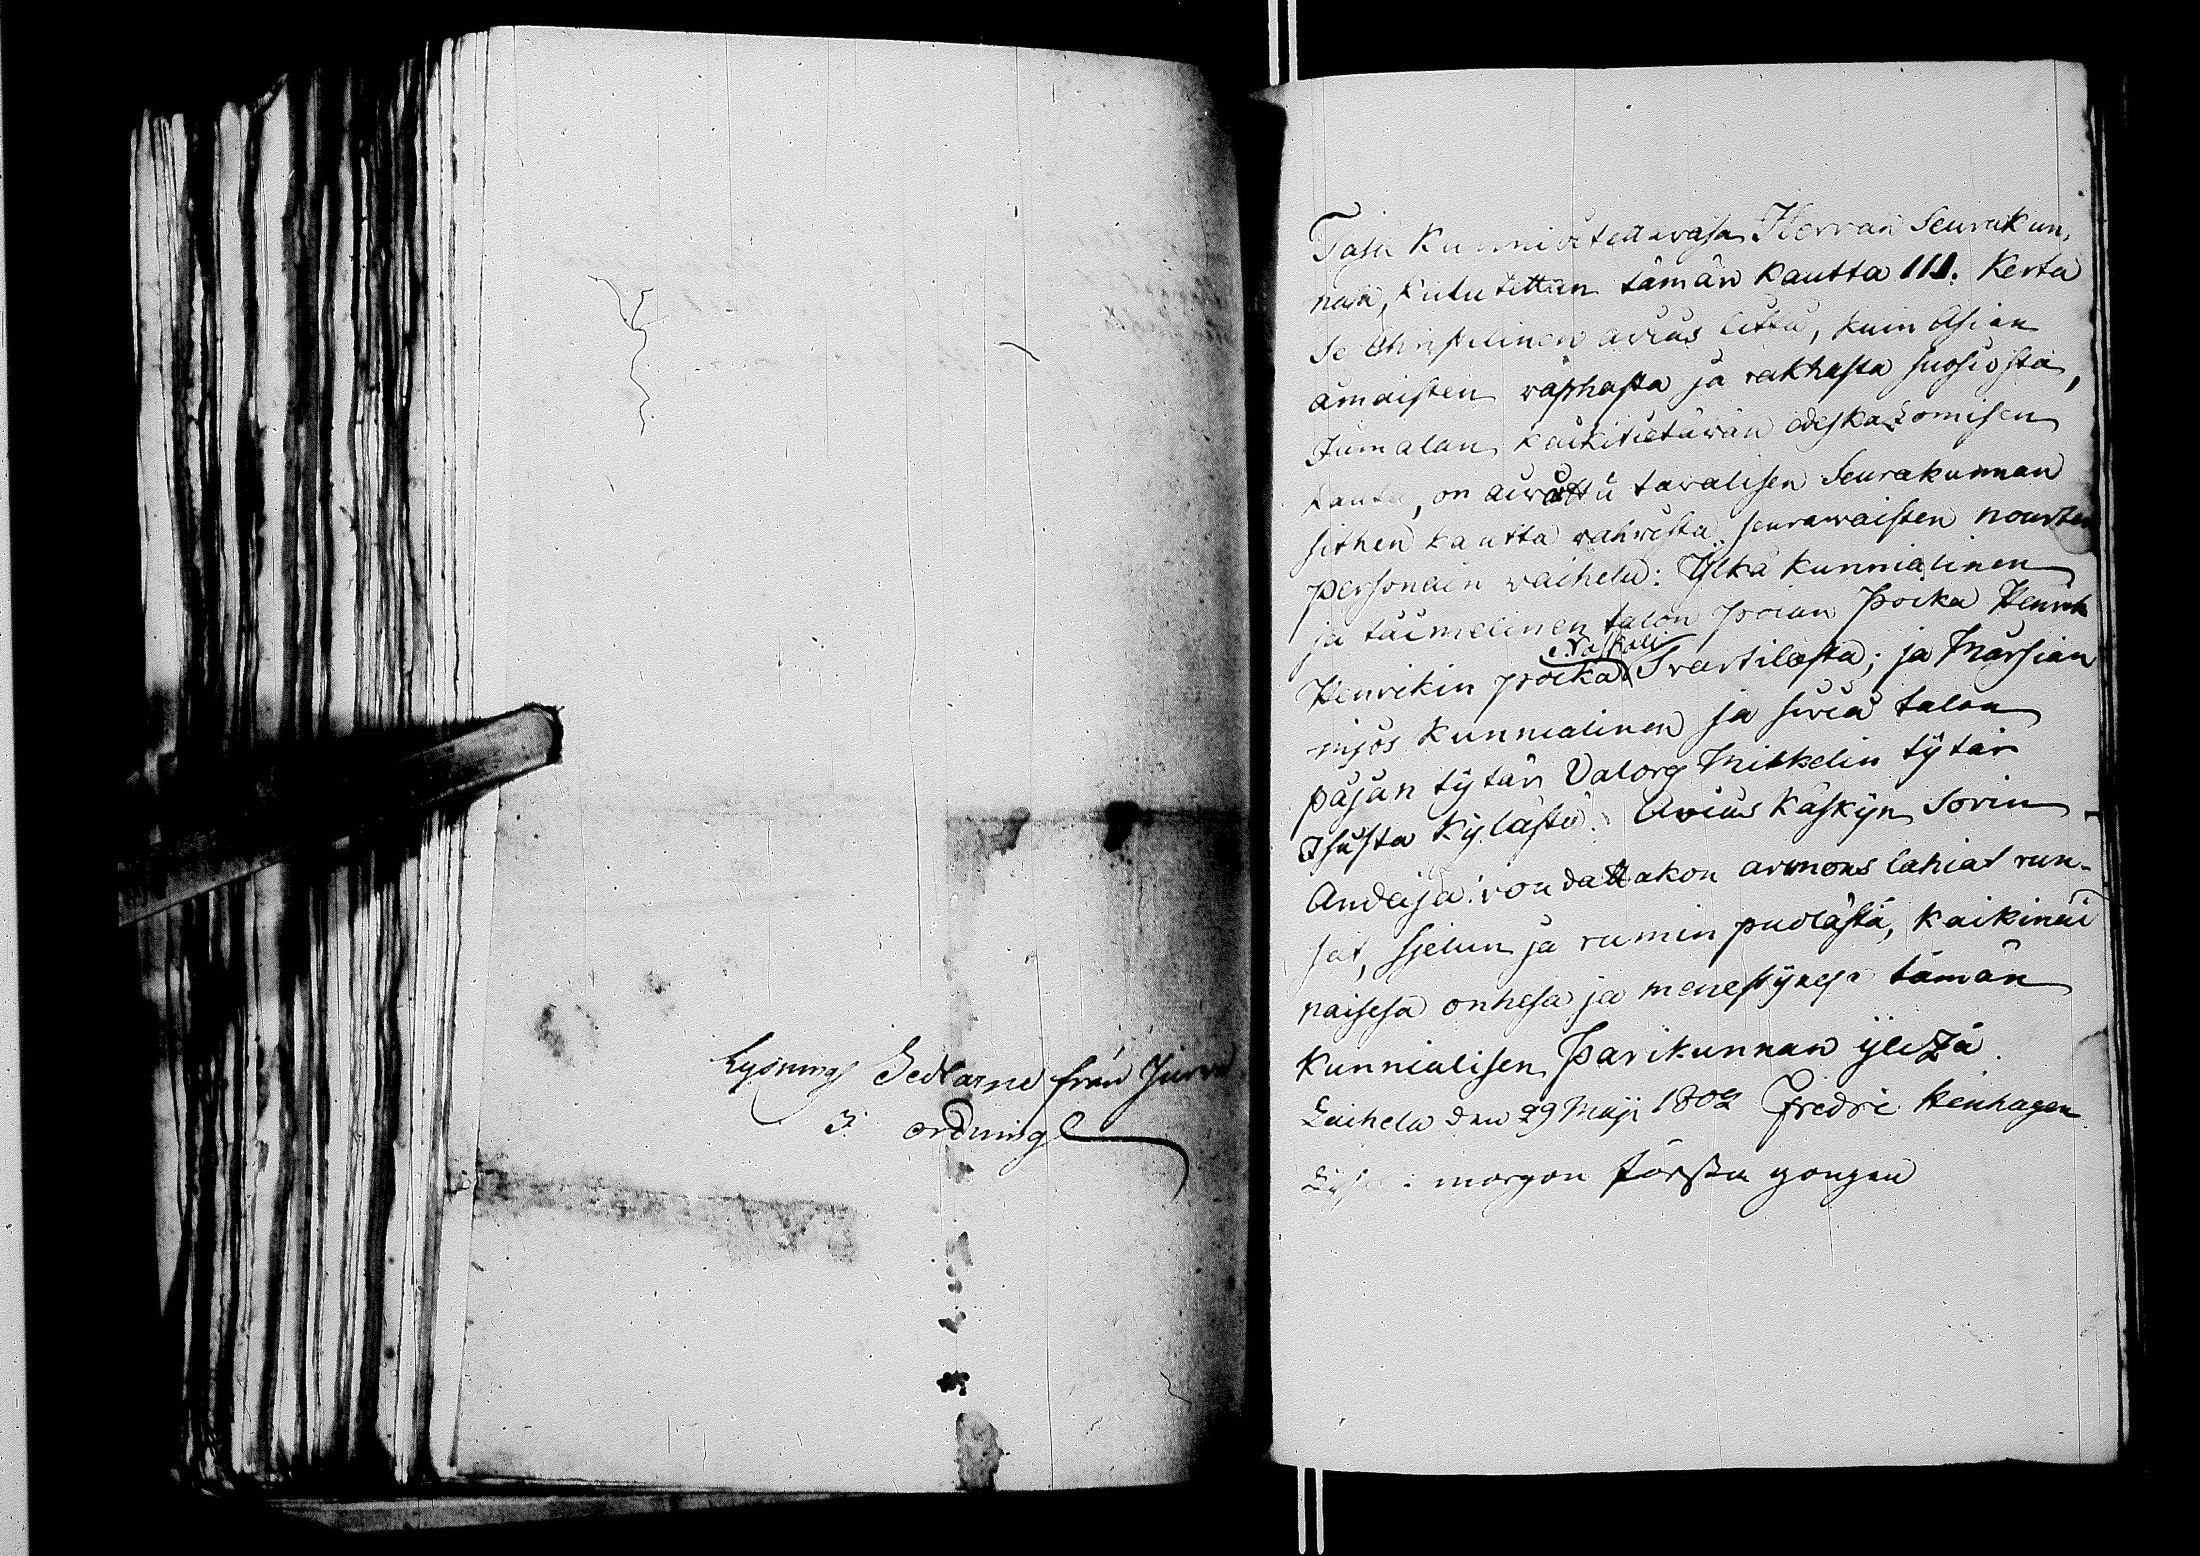 Lysnings Sedlarne från Jurva
I ordning
Täsä Kunnivitettavasa Herran Seurakun,
nasa, kulutettan tämän kautta III. Kerta
se Christilinen avius littu, kuin Asian
amaisten rashasta ja rakhasta suosiosta,
Jumalan kaikitietäwän edeskazomisen
kautta, on aiwottu tavalisen Seurakunnan
sithen kautta vahvista seurawaisten nourten
personain vaihela: Ylkä kunnialinen
ja taimelinen talon poian poika Henrik
Henrikin poika Naskali Svartilasta; ja Marsian
mjös kunnialinen ja siviä talon
päjän tytär Valorg Mikkelin tytär
Isusta Kylästä. Avius Käskyn Sovin
Andaja: voudattakon armons lahiat run-
sat, sjelun ja rumin puolästä, kaikinai
naisesa onhesa ja menestyxesä tämän
kunnialisen Parikunnan ylizä.
Laihela den 29 Maji 1802 Fredric Heinhagen
Lyses i morgon första gongen